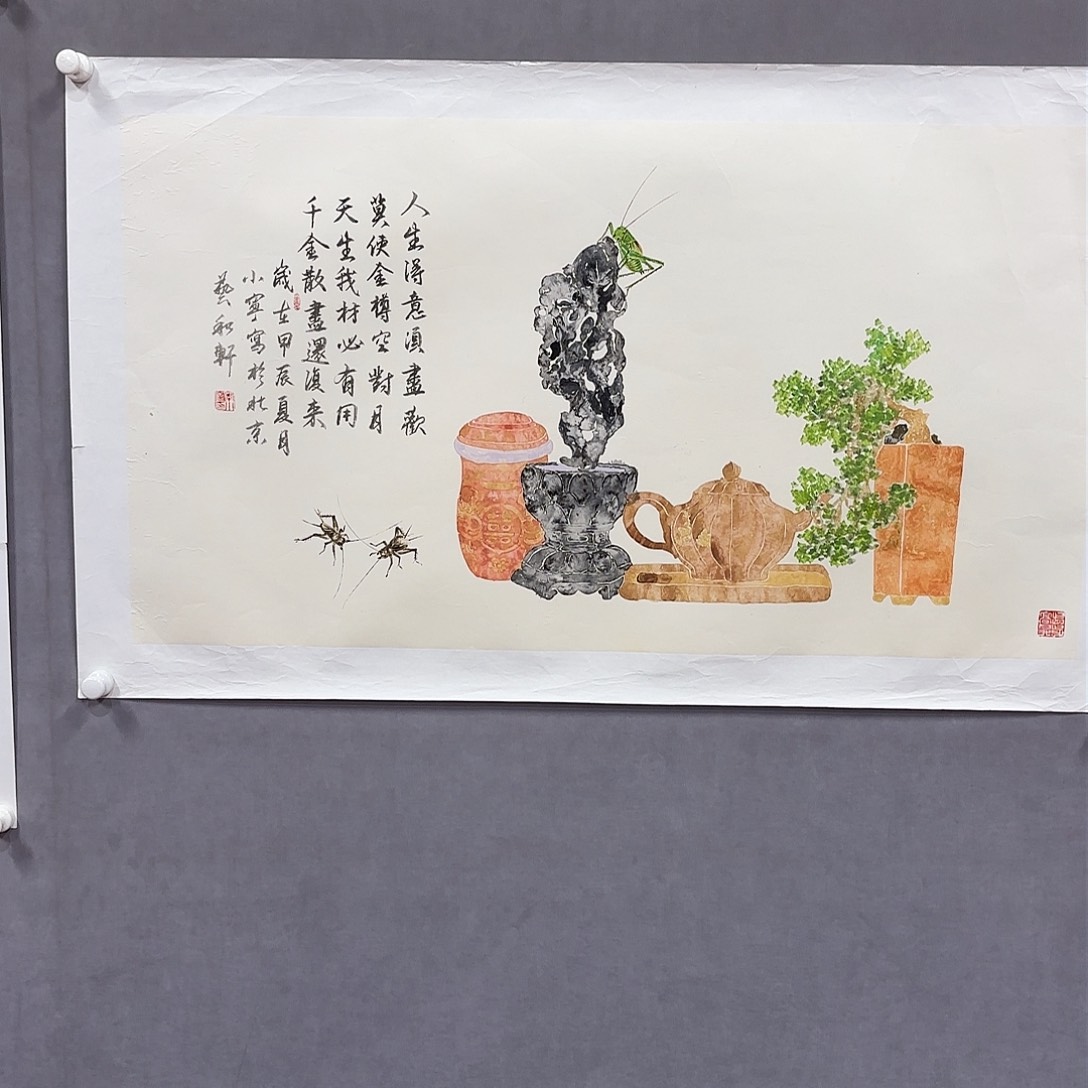 人生得意須盡歡
莫使金樽空對月
天生我材必有用
千金散盡還復来
歲在甲辰夏月
小寧寫於北京
藝和軒